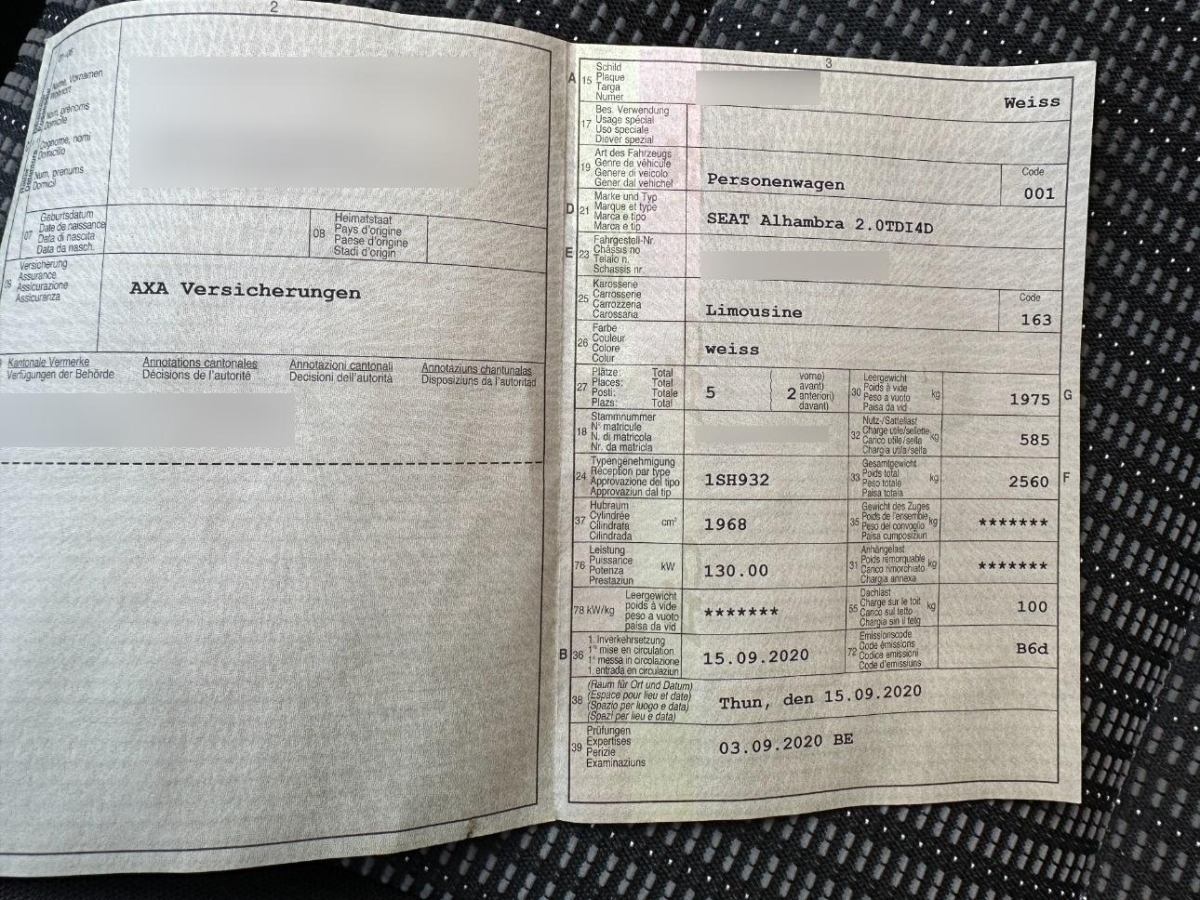 2
Name, Vornamen
Nom, prénoms
Domicile
Cognome, nomi
Domicilio
Num, prenums
Domicil
07
Geburtsdatum
Date de naissance
Data di nascita
Data da nasch.
08
Heimatstaat
Pays d'origine
Paese d'origine
Stadi d'origin
09
Versicherung
Assurance
Assicurazione
Assicuranza
AXA Versicherungen
Kantonale Vermerke
Verfügungen der Behörde
Annotations cantonales
Décisions de l'autorité
Annotazioni cantonali
Decisioni dell'autorità
Annotaziuns chantunalas
Disposiziuns da l'autoritad
3
A 15
Schild
Plaque
Targa
Numer
Weiss
17
Bes. Verwendung
Usage spécial
Uso speciale
Diever spezial
19
Art des Fahrzeugs
Genre de véhicule
Genere di veicolo
Gener dal vehichel
Personenwagen
Code
001
D 21
Marke und Typ
Marque et type
Marca e tipo
Marca e tip
SEAT Alhambra 2.0TDI4D
E 23
Fahrgestell-Nr.
Châssis no
Telaio n.
Schassis nr.
25
Karosserie
Carrosserie
Carrozzeria
Carossaria
Limousine
Code
163
26
Farbe
Couleur
Colore
Colur
weiss
27
Plätze: Total
Places: Total
Posti: Totale
Plazs: Total
5
2
vorne)
avant)
anteriori)
davant)
30
Leergewicht
Poids à vide
Peso a vuoto
Paisa da vid
kg
1975
G
18
Stammnummer
N° matricule
N. di matricola
Nr. da matricla
32
Nutz-/Sattellast
Charge utile/sellette
Carico utile/sella
Chargia utila/sella
kg
585
24
Typengenehmigung
Réception par type
Approvazione del tipo
Approvaziun dal tip
1SH932
33
Gesamtgewicht
Poids total
Peso totale
Paisa totala
kg
2560
F
37
Hubraum
Cylindrée
Cilindrata
Cilindrada
cm³
1968
35
Gewicht des Zuges
Poids de l'ensemble
Peso del convoglio
Paisa cumposiziun
kg
*******
76
Leistung
Puissance
Potenza
Prestaziun
kW
130.00
31
Anhängelast
Poids remorquable
Carico rimorchiato
Chargia annexa
kg
*******
78 kW/kg
Leergewicht
poids à vide
peso a vuoto
paisa da vid
*******
55
Dachlast
Charge sur le toit
Carico sul tetto
Chargia sin il tetg
kg
100
B 36
1. Inverkehrsetzung
1re mise en circulation
1a messa in circolazione
1. entrada en circulaziun
15.09.2020
72
Emissionscode
Code émissions
Codice emissioni
Code d'emissiuns
B6d
38
(Raum für Ort und Datum)
(Espace pour lieu et date)
(Spazio per luogo e data)
(Spazi per lieu e data)
Thun, den 15.09.2020
39
Prüfungen
Expertises
Perizie
Examinaziuns
03.09.2020 BE